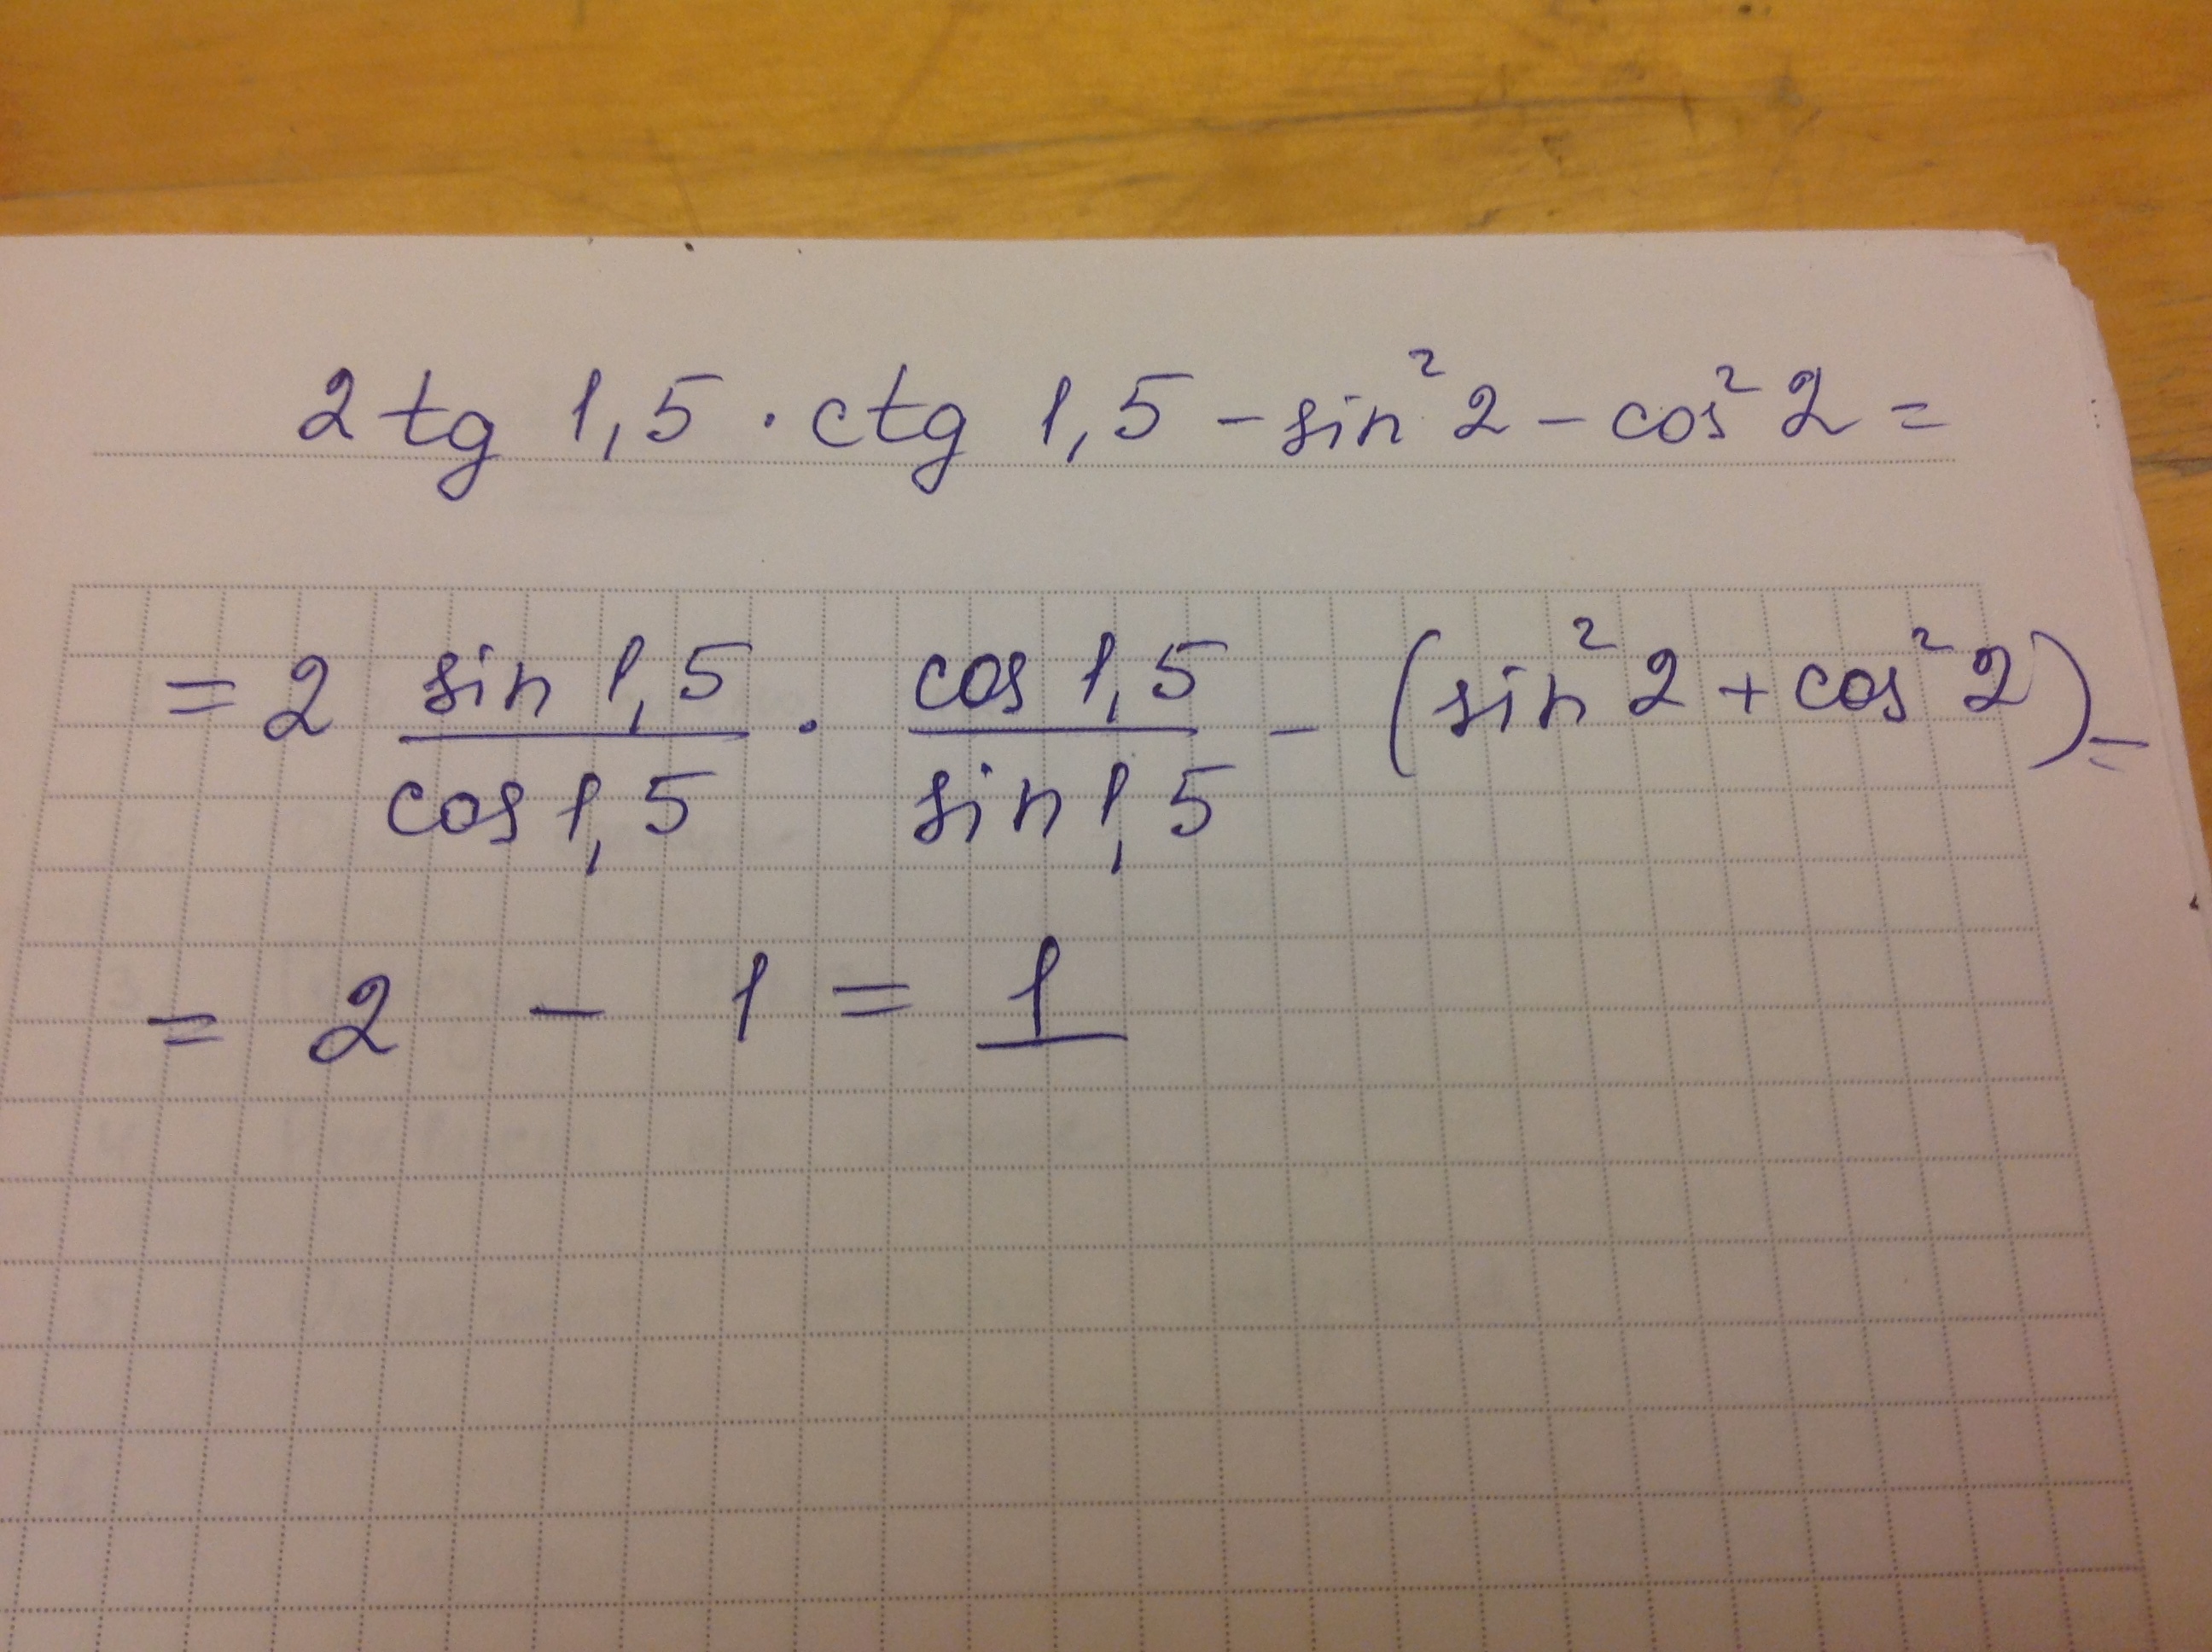 2 tg 1,5 · ctg 1,5 - sin² 2 - cos² 2 =
= 2 sin 1,5 / cos 1,5 · cos 1,5 / sin 1,5 - (sin² 2 + cos² 2) =
= 2 - 1 = 1